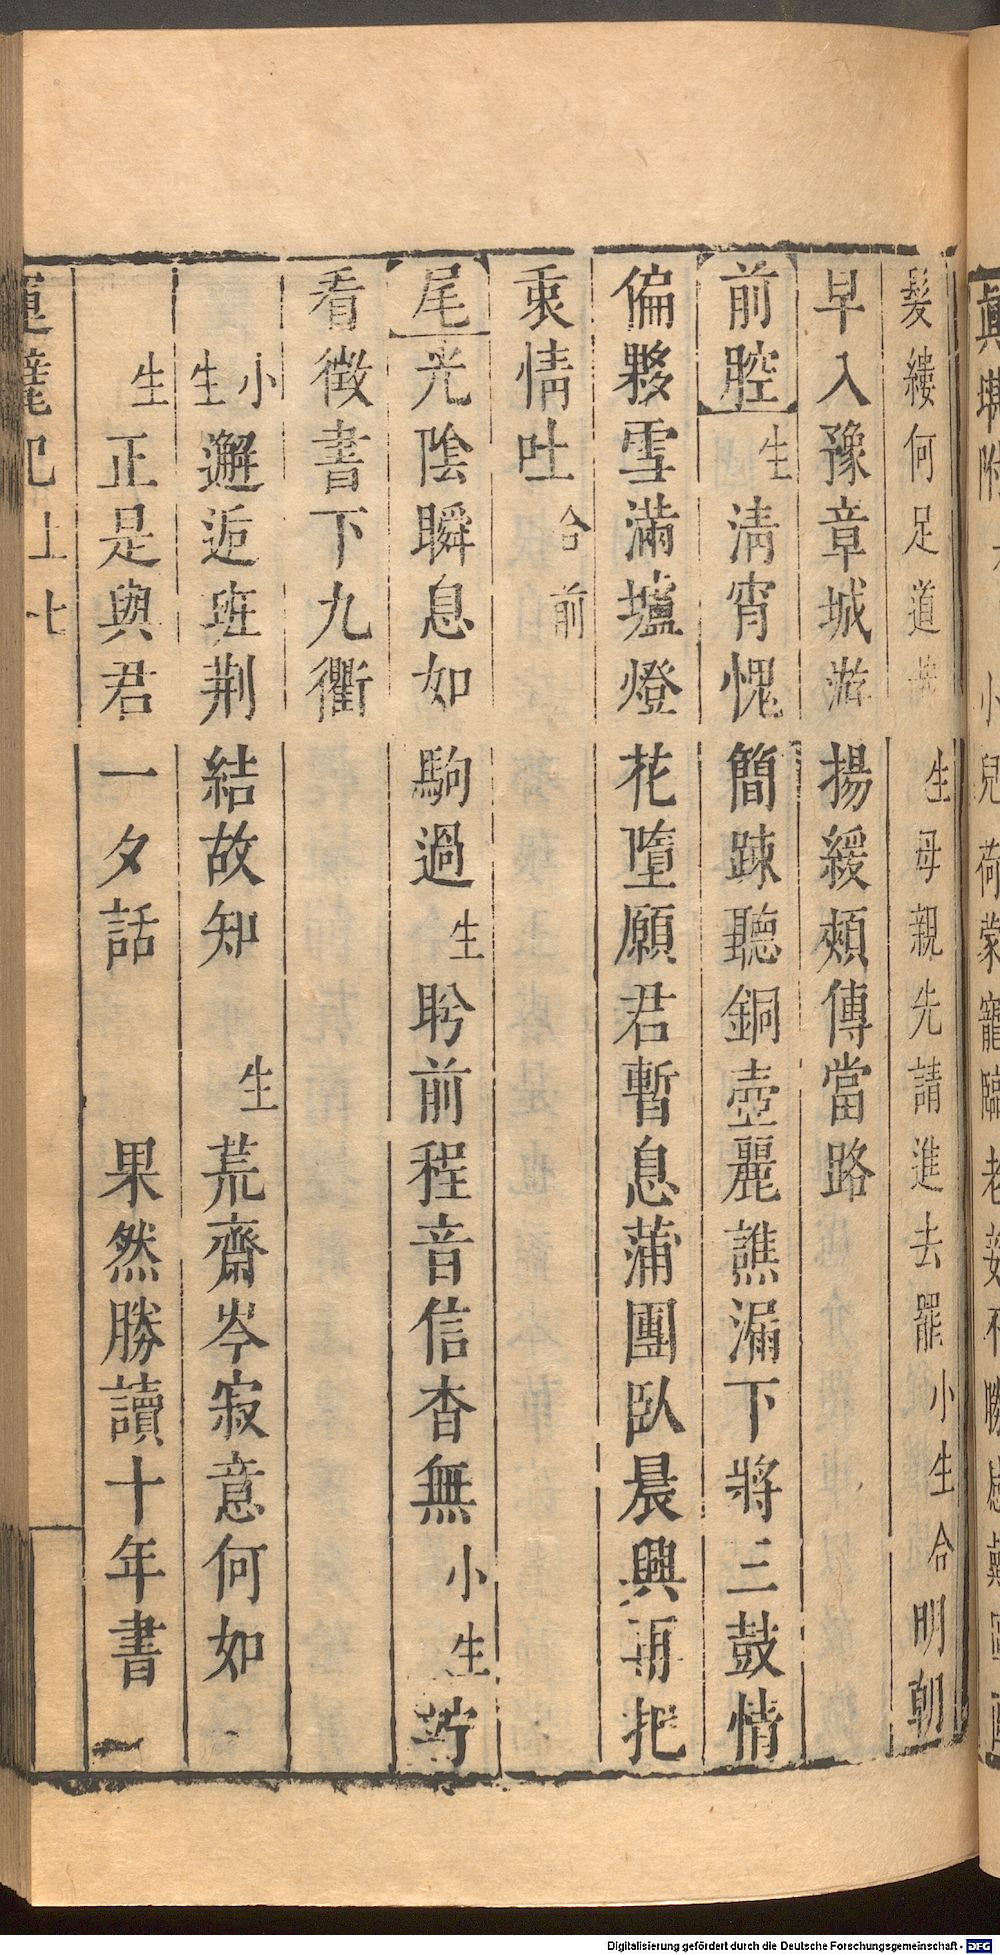 眞堪附 小兒荷蒙寵臨老妾不勝感戴
髮縷何足道 生母親先請進去罷小生合明朝
早入豫章城游揚緩頰傳當路
前腔生清宵愧簡踈聽銅壺麗譙漏下將三鼓情
偏夥雪滿壚燈花墮願君暫息蒲團臥晨興再把
衷情吐合前
尾光陰瞬息如駒過生盻前程音信杳無小生竚
看徵書下九衢
小生邂逅班荆結故知 生荒齋岑寂意何如
生正是與君一夕話 果然勝讀十年書
記上 七
Digitalisierung gefördert durch die Deutsche Forschungsgemeinschaft - DFG